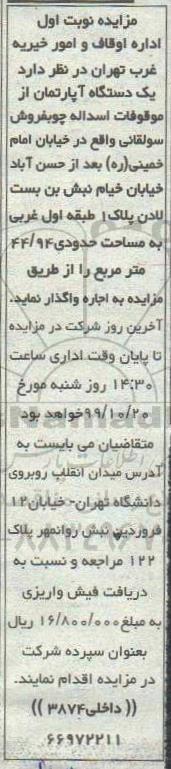 مزایده نوبت اول
اداره اوقاف و امور خیریه
غرب تهران در نظر دارد
یک دستگاه آپارتمان از
موقوفات اسداله چوبفروش
سولقانی واقع در خیابان امام
خمینی(ره) بعد از حسن آباد
خیابان خیام نبش بن بست
لادن پلاک۱ طبقه اول غربی
به مساحت حدودی۴۴/۹۴
متر مربع را از طریق
مزایده به اجاره واگذار نماید.
آخرین روز شرکت در مزایده
تا پایان وقت اداری ساعت
۱۴:۳۰ روز شنبه مورخ
۹۹/۱۰/۲۰خواهد بود
متقاضیان می بایست به
آدرس میدان انقلاب روبروی
دانشگاه تهران- خیابان۱۲
فروردین نبش روانمهر پلاک
۱۲۲ مراجعه و نسبت به
دریافت فیش واریزی
به مبلغ ۱۶/۸۰۰/۰۰۰ ریال
بعنوان سپرده شرکت
در مزایده اقدام نمایند.
(( داخلی۳۸۷۴ ))
۶۶۹۷۲۲۱۱